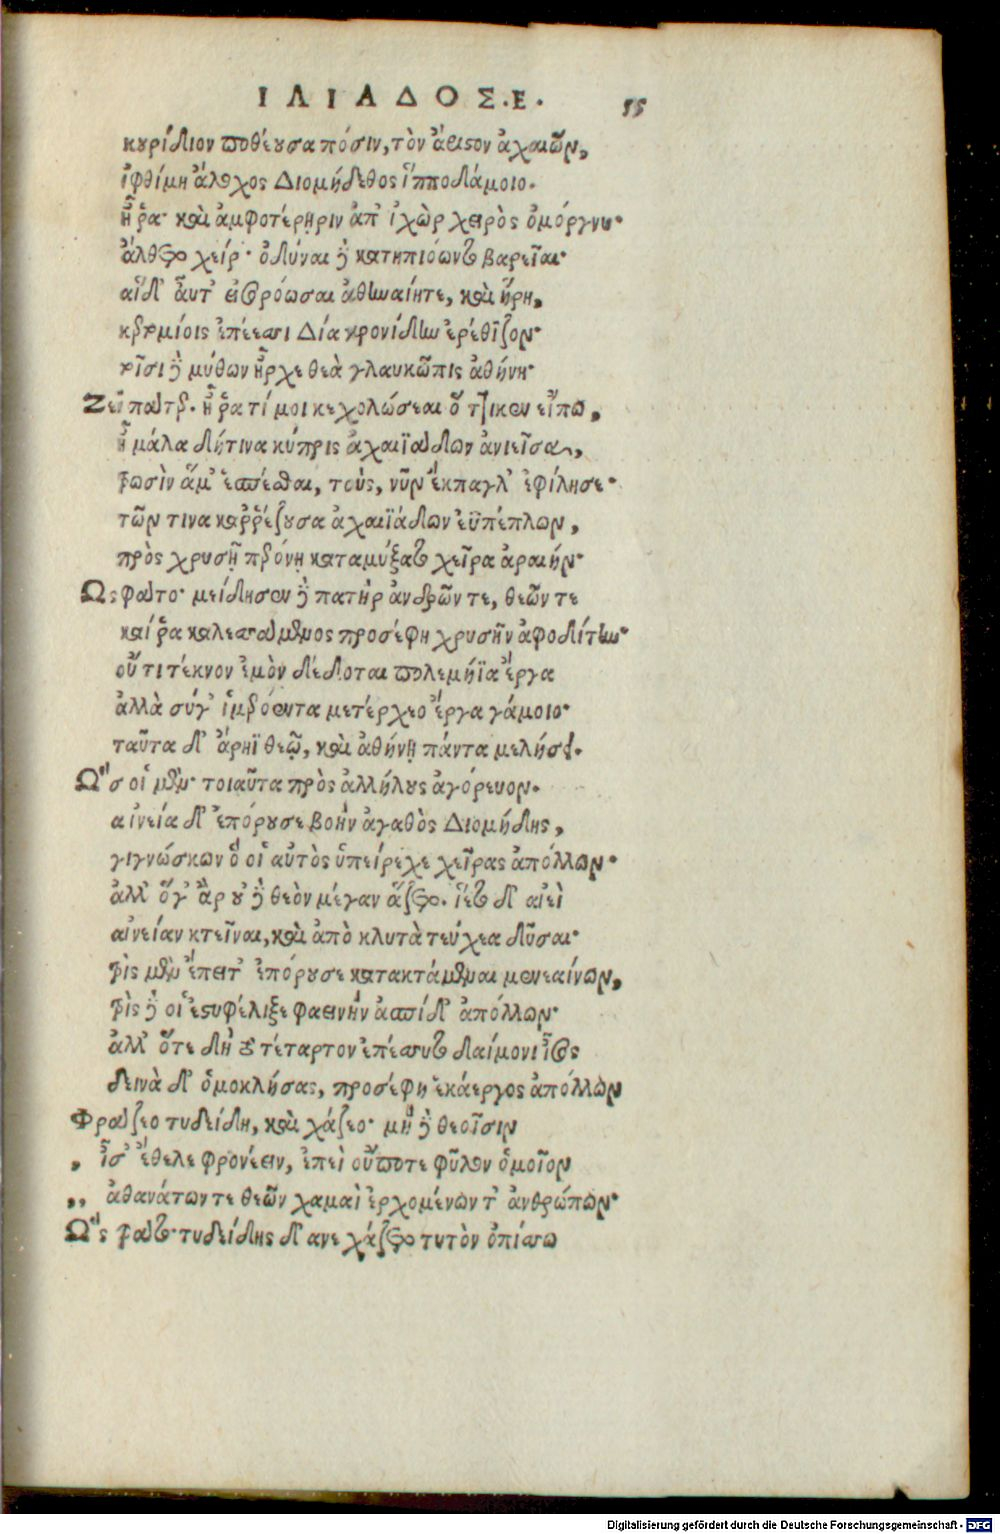 ΙΛΙΑΔΟΣ.Ε. 55
κουρίδιον ποθέουσα πόσιν, τὸν ἄριστον ἀχαιῶν,
ἰφθίμη ἄλοχος Διομήδεος ἱπποδάμοιο.
ἦ ῥα· καὶ ἀμφοτέρῃσιν ἀπ' ἰχὼρ χειρὸς ὀμόργνυ·
ἄλθετο χείρ· ὀδύναι δὲ κατηπιόωντο βαρεῖαι·
αἱ δ' αὖτ' εἰσορόωσαι ἀθηναίητε, καὶ ἥρη,
κερτομίοις ἐπέεσσι Δία κρονίδην ἐρέθιζον·
τοῖσι δὲ μύθων ἦρχε θεὰ γλαυκῶπις ἀθήνη·
Ζεῦ πάτερ. ἦ ῥα τί μοι κεχολώσεαι ὅ ττι κεν εἴπω,
ἦ μάλα δή τινα κύπρις ἀχαιϊάδων ἀνιεῖσα,
τρωσὶν ἅμ' ἑσπέσθαι, τοὺς, νῦν ἔκπαγλ' ἐφίλησε·
τῶν τινα καῤῥέζουσα ἀχαιϊάδων ἐϋπέπλων,
πρὸς χρυσῇ περόνῃ καταμύξατο χεῖρα ἀραιήν·
Ὣς φάτο· μείδησεν δὲ πατὴρ ἀνδρῶν τε, θεῶν τε
καί ῥα καλεσσάμενος προσέφη χρυσῆν ἀφροδίτην·
οὔ τι τέκνον ἐμὸν δέδοται πολεμήϊα ἔργα
ἀλλὰ σύγ' ἱμερόεντα μετέρχεο ἔργα γάμοιο·
ταῦτα δ' ἄρηϊ θεῷ, καὶ ἀθήνῃ πάντα μελήσει.
Ὣς οἱ μὲν· τοιαῦτα πρὸς ἀλλήλους ἀγόρευον.
αἰνεία δ' ἐπόρουσε βοὴν ἀγαθὸς Διομήδης,
γιγνώσκων ὅ οἱ αὐτὸς ὑπείρεχε χεῖρας ἀπόλλων·
ἀλλ' ὅγ' ἂρ οὐδὲ θεὸν μέγαν ἅζετο. ἵετο δ' αἰεὶ
αἰνείαν κτεῖναι, καὶ ἀπὸ κλυτὰ τεύχεα λῦσαι·
τρὶς μὲν ἔπειτ' ἐπόρουσε κατακτάμεναι μενεαίνων,
τρὶς δὲ οἱ ἐστυφέλιξε φαεινὴν ἀσπίδ' ἀπόλλων·
ἀλλ' ὅτε δὴ τὸ τέταρτον ἐπέσσυτο δαίμονι ἶσος
δεινὰ δ' ὁμοκλήσας, προσέφη ἑκάεργος ἀπόλλων
Φράζεο τυδείδη, καὶ χάζεο· μὴ δὲ θεοῖσιν
, ἶσ' ἔθελε φρονέειν, ἐπεὶ οὔποτε φῦλον ὁμοῖον
,, ἀθανάτων τε θεῶν χαμαὶ ἐρχομένων τ' ἀνθρώπων·
Ὣς φάτο· τυδείδης δ' ανεχάζετο τυτὸν ὀπίσσω
Digitalisierung gefördert durch die Deutsche Forschungsgemeinschaft - DFG